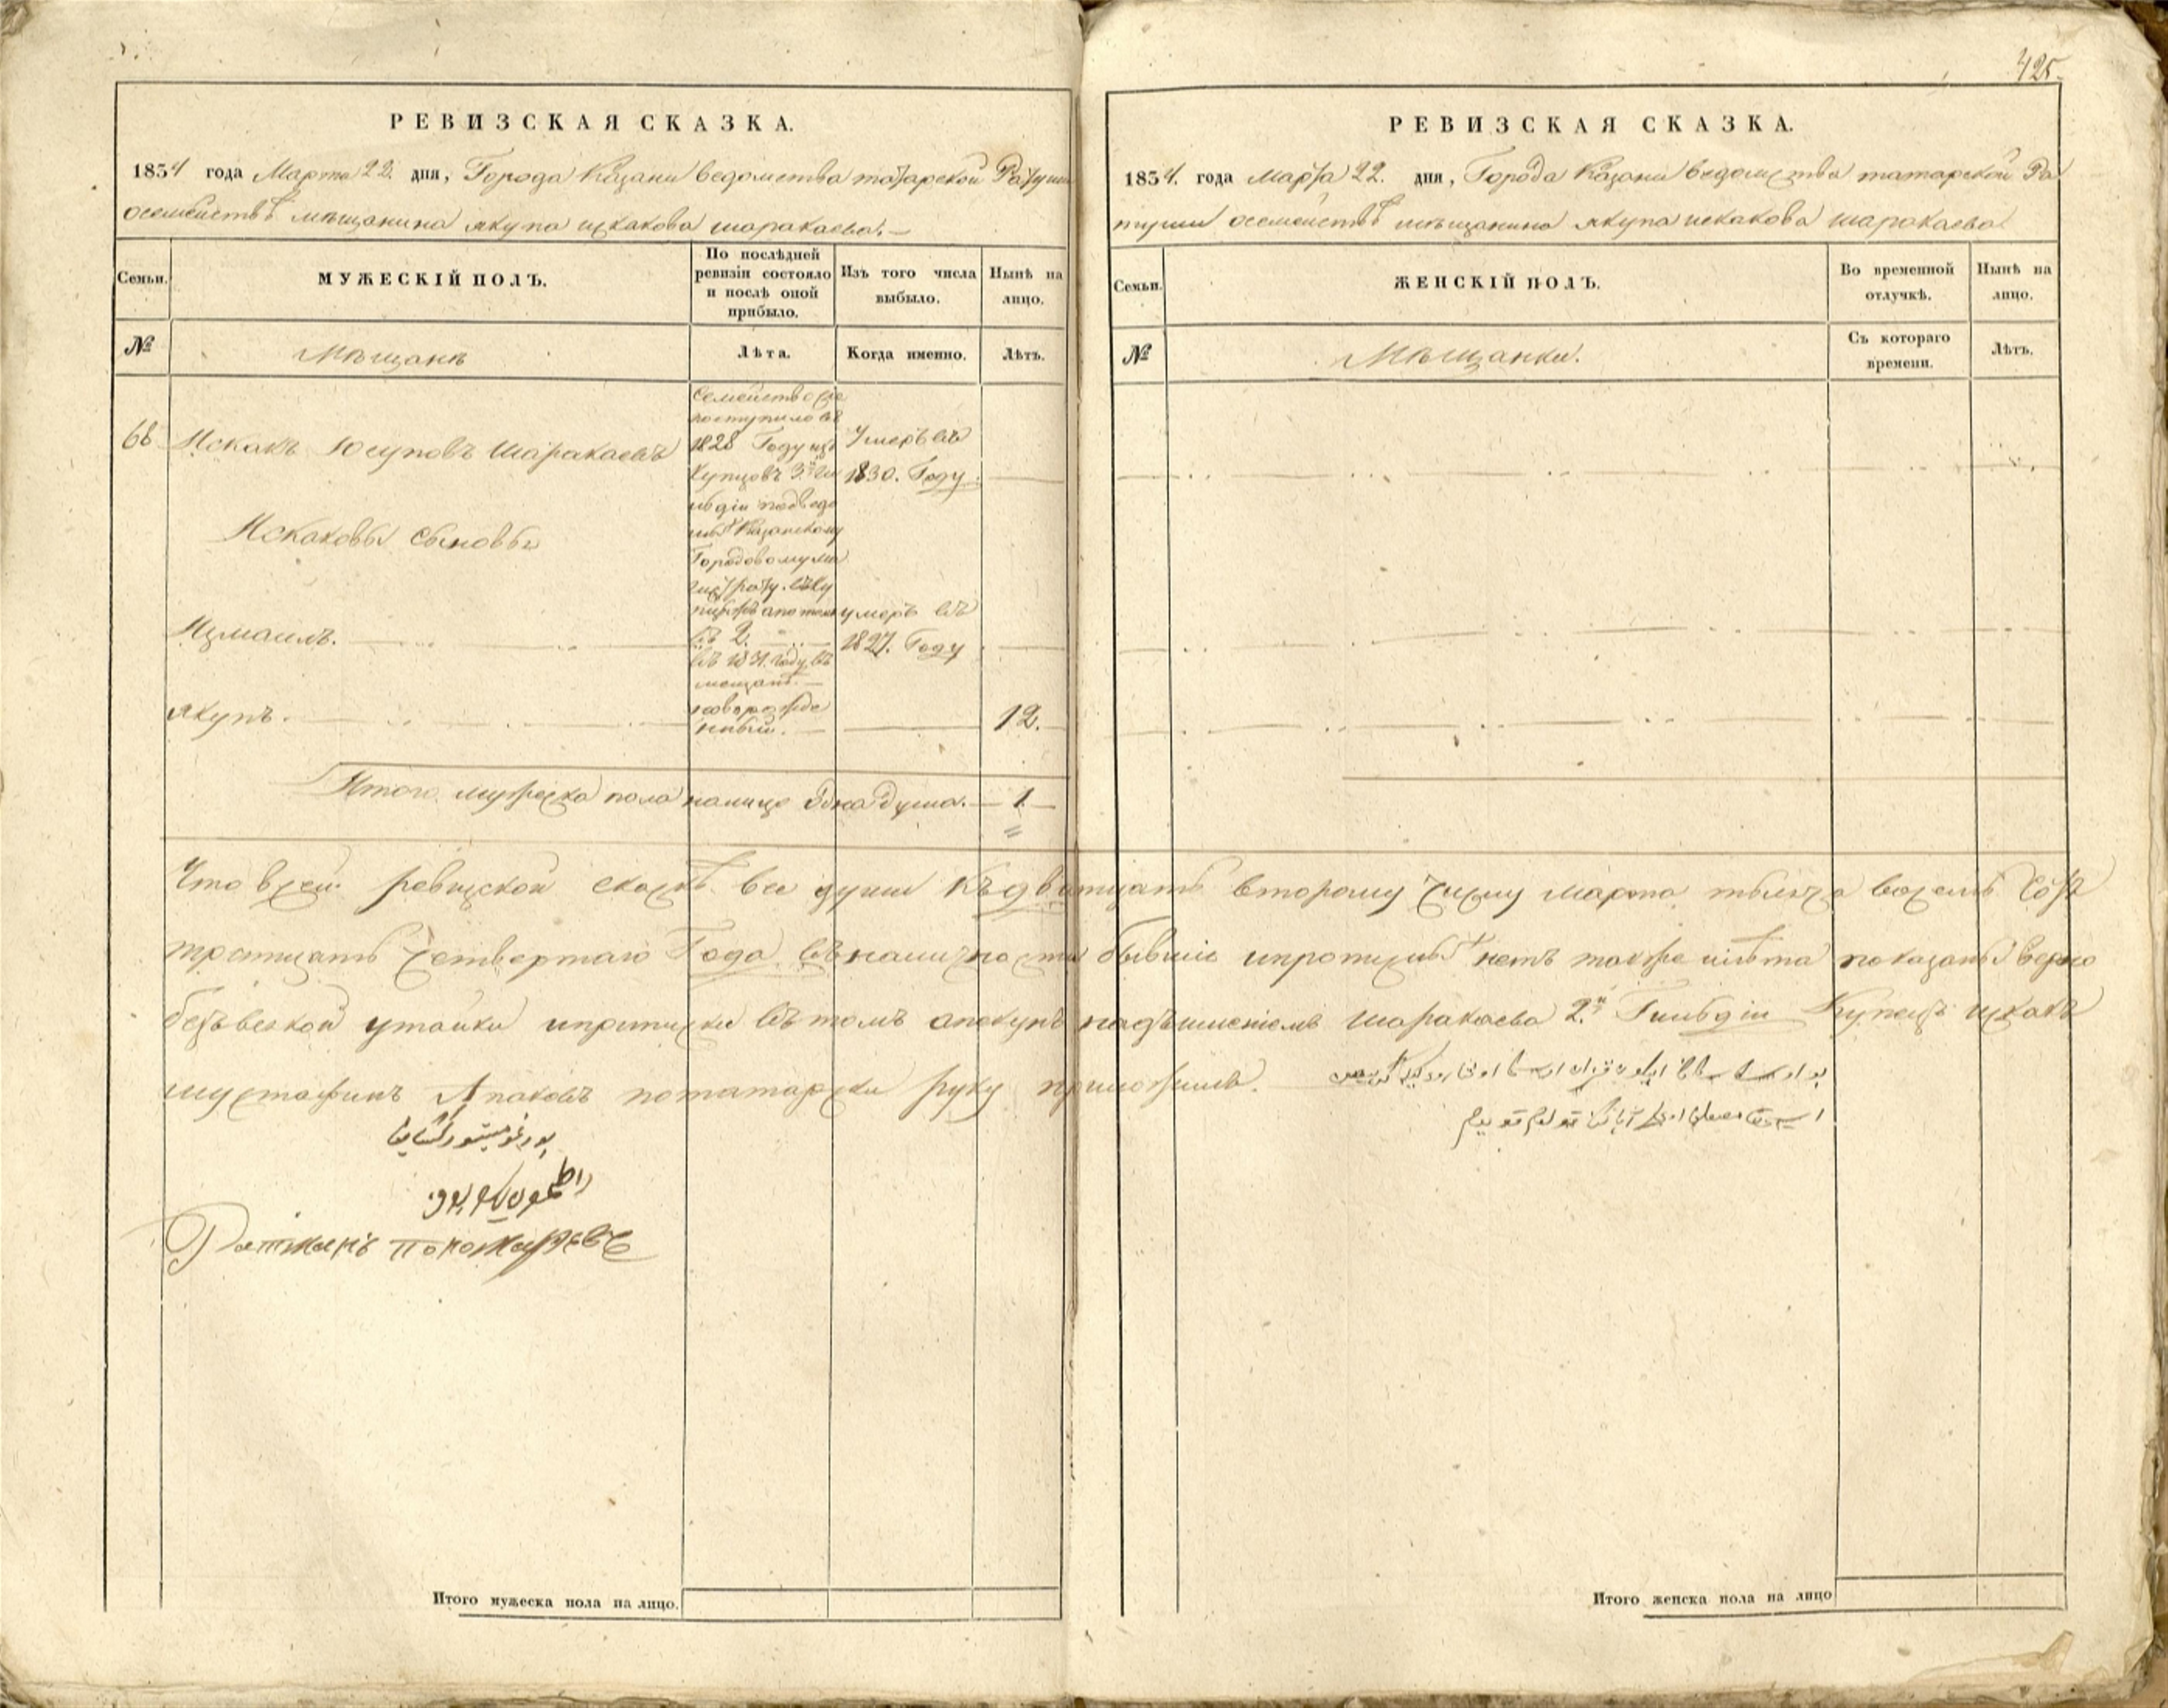 425.
РЕВИЗСКАЯ СКАЗКА.
1834 года Марта 22. дня, Города Казани ведомства татарской Ратуши
осемействѣ мѣщанина якупа искакова шаракаева.
Семьи.
МУЖЕСКІЙ ПОЛЪ.
По послѣдней ревизіи состояло и послѣ оной прибыло.
Изъ того числа выбыло.
Нынѣ на лицо.
№
Мѣщанъ
Лѣта.
Когда именно.
Лѣтъ.
68
Искакъ Юсуповъ Шаракаевъ
Семейство сіе
поступило въ
1828 Году изъ
Купцовъ 3й ги
льдіи подведо
мыхъ Казанскому
Городовому ма
гистрату.
Умеръ въ
1830. Году.
Искаковы Сыновья
Измаилъ.
2.
въ 1831. году въ
мещанъ.
умеръ въ
1827. Году
якупъ.
новорожде
нный.
12.
Итого мужеска пола налицо Одна душа. 1.
РЕВИЗСКАЯ СКАЗКА.
1834. года Марта 22. дня, Города Казани ведомства татарской Ра
туши осемействѣ мѣщанина якупа искакова шаракаева
Семьи.
ЖЕНСКІЙ ПОЛЪ.
Во временной отлучкѣ.
Нынѣ на лицо.
№
Мѣщанки.
Съ котораго времени.
Лѣтъ.
Что всей ревизской сказкѣ все души Къдватцать второму числу марта тысяча восемь сотъ
тритцать четвертаго Года въналичности бывшіе ипрописныхъ нетъ также илѣта показаны верно
безъвсякой утайки иприписки вътомъ опекунъ надъимѣніемъ Шаракаева 2.й Гильдіи Купецъ искакъ
мустафинъ Апаковъ потатарски руку приложилъ.
Ратманъ
Итого мужеска пола на лицо.
Итого женска пола на лицо